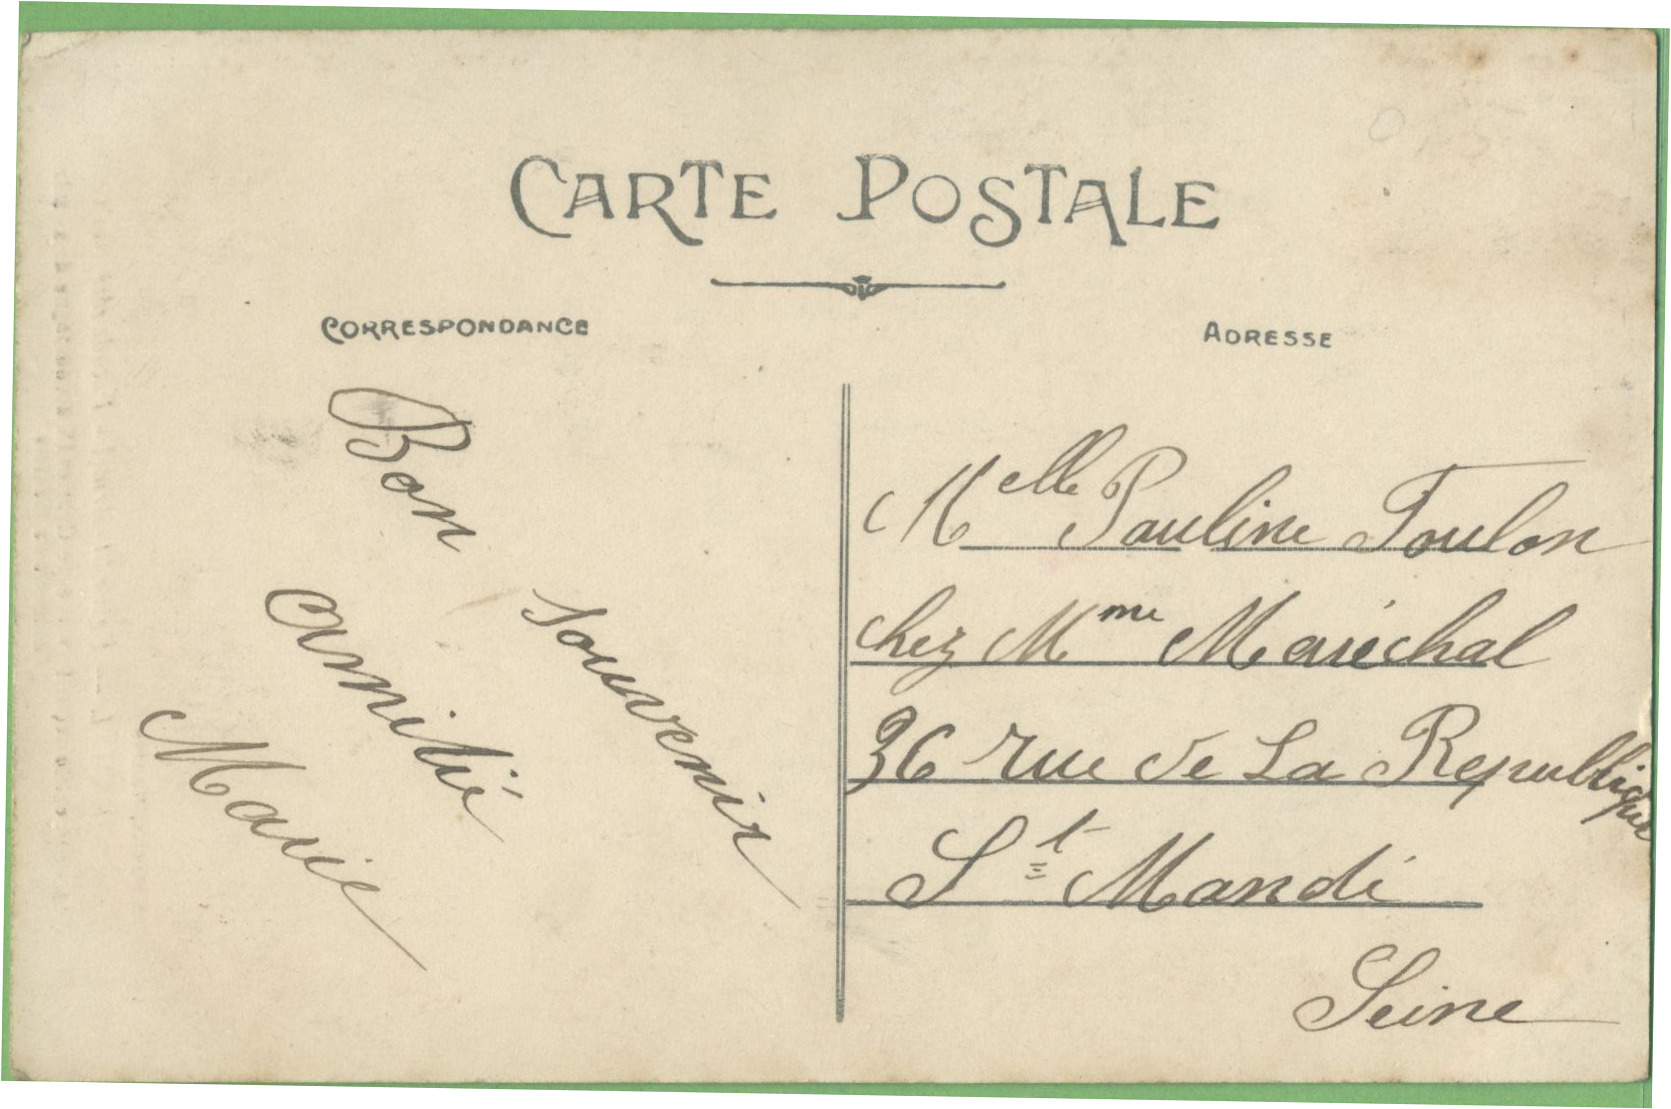 CARTE POSTALE
CORRESPONDANCE
Bon
souvenir
amitié
Marie
ADRESSE
Melle Pauline Toulon
chez Mme Maréchal
36 rue de La Republique
St Mandé
Seine